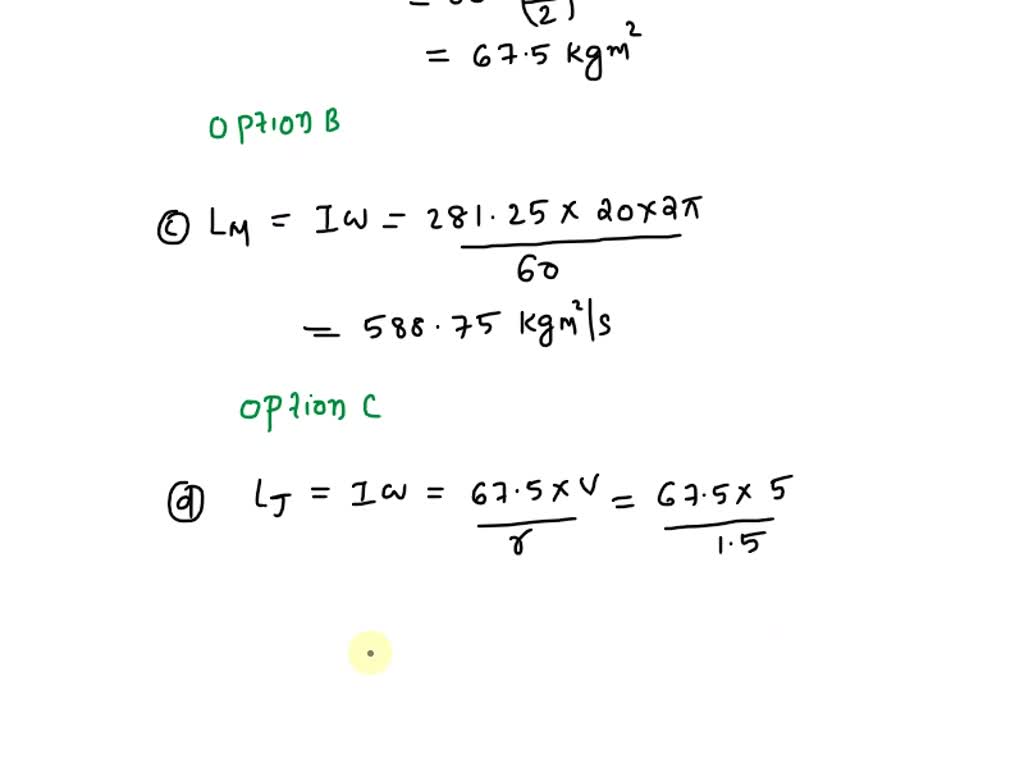 2)
= 67.5 kgm²
Option B
ⓒ LM = Iω = 281.25 × 20×2π
60
= 588.75 kgm²/s
Option C
ⓓ LJ = Iω = 67.5 × V = 67.5 × 5
r 1.5